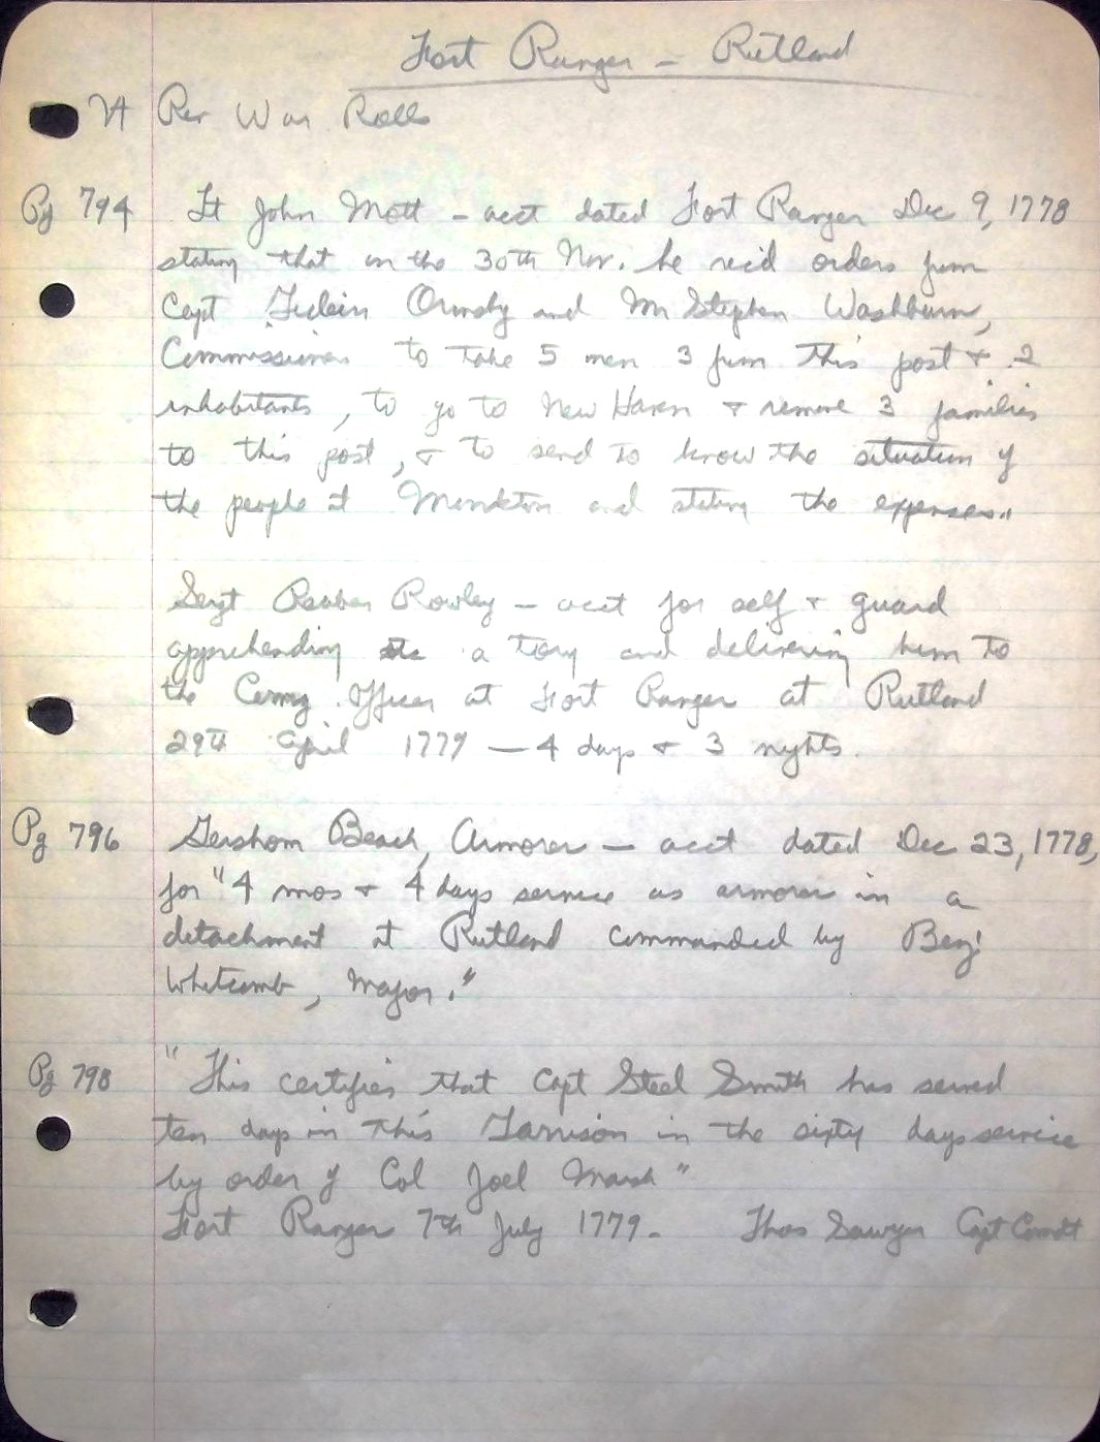 Fort Ranger - Rutland
Vt Rev War Rolls
Pg 794 Lt John Mott - acct dated Fort Ranger Dec 9, 1778
stating that on the 30th Nov. he rec'd orders from
Capt Gideon Ormsby and Mr Stephen Washburn,
Commissioners to take 5 men 3 from this post & 2
inhabitants, to go to New Haven & remove 3 families
to this post, & to send to know the situation of
the people at Monkton and stating the expenses."
Sergt Reuben Rowley - acct for self & guard
apprehending a tory and delivering him to
the Comg. Officer at Fort Ranger at Rutland
29th April 1779 — 4 days & 3 nights.
Pg 796 Gershom Beach, Armorer — acct dated Dec 23, 1778,
for "4 mos & 4 days service as armorer in a
detachment at Rutland commanded by Benj.
Whitcomb, Major."
Pg 798 "This certifies that Capt Steel Smith has served
ten days in this Garrison in the sixty days service
by order of Col Joel Marsh"
Fort Ranger 7th July 1779. Thos Sawyer Capt Comdt